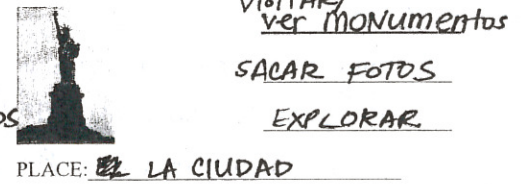 VISITAR/
ver monumentos
SACAR FOTOS
os
EXPLORAR
PLACE: LA CIUDAD